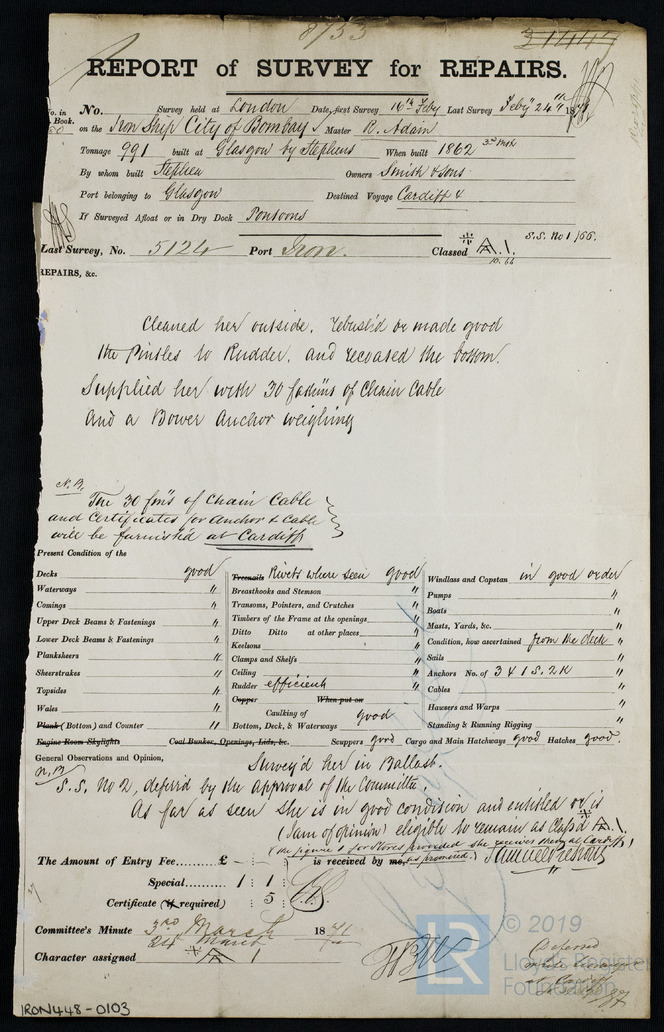 8753
REPORT of SURVEY for REPAIRS.
No. in
Book.
No. Survey held at London Date, first Survey 16th Feby Last Survey Feby 24th 18
on the Iron Ship City of Bombay Master R. Adam
Tonnage 991 built at Glasgow by Stephens When built 1862 3rd Mth
By whom built Stephen Owners Smith & Sons
Port belonging to Glasgow Destined Voyage Cardiff &
If Surveyed Afloat or in Dry Dock Pontoons
S.S. No 1/66.
Last Survey, No. 5124 Port Iron. Classed A.1.
10.66
REPAIRS, &c.
Cleaned her outside. Rebush'd or made good
the Pintles to Rudder. and recoated the bottom.
Supplied her with 30 fathms of Chain Cable
and a Bower Anchor weighing
N.B.
The 30 fms of Chain Cable
and Certificates for Anchor & Cable
will be furnish'd at Cardiff
Present Condition of the
Decks good
Waterways "
Comings "
Upper Deck Beams & Fastenings "
Lower Deck Beams & Fastenings "
Planksheers "
Sheerstrakes "
Topsides "
Wales "
Plank (Bottom) and Counter "
Engine Room Skylights
Treenails Rivets where seen good
Breasthooks and Stemson "
Transoms, Pointers, and Crutches "
Timbers of the Frame at the openings "
Ditto Ditto at other places "
Keelsons "
Clamps and Shelfs "
Ceiling "
Rudder efficient "
Copper When put on
Caulking of
Bottom, Deck, & Waterways good
Coal Bunker, Openings, Lids, &c. Scuppers good Cargo and Main Hatchways good Hatches good.
Windlass and Capstan in good order
Pumps "
Boats "
Masts, Yards, &c. "
Condition, how ascertained from the deck "
Sails "
Anchors No. of 3 & 1 S. 2 K "
Cables "
Hawsers and Warps "
Standing & Running Rigging "
General Observations and Opinion, Survey'd her in Ballast.
N.B
S.S. No 2, deferr'd by the Approval of the Committee.
As far as seen she is in good condition and entitled or is
(I am of opinion) eligible to remain as Class'd A.1.
(the figure 1 for Stores provided she receives them at Cardiff)
The Amount of Entry Fee......... £ - : - : is received by me, as promised.
Special......... 1 : 1 :
Certificate (if required) : 5 :
Committee's Minute 3rd March 18
Character assigned A 1
Deferred
© 2019
LR
Lloyd's Register
Foundation
IRON448-0103